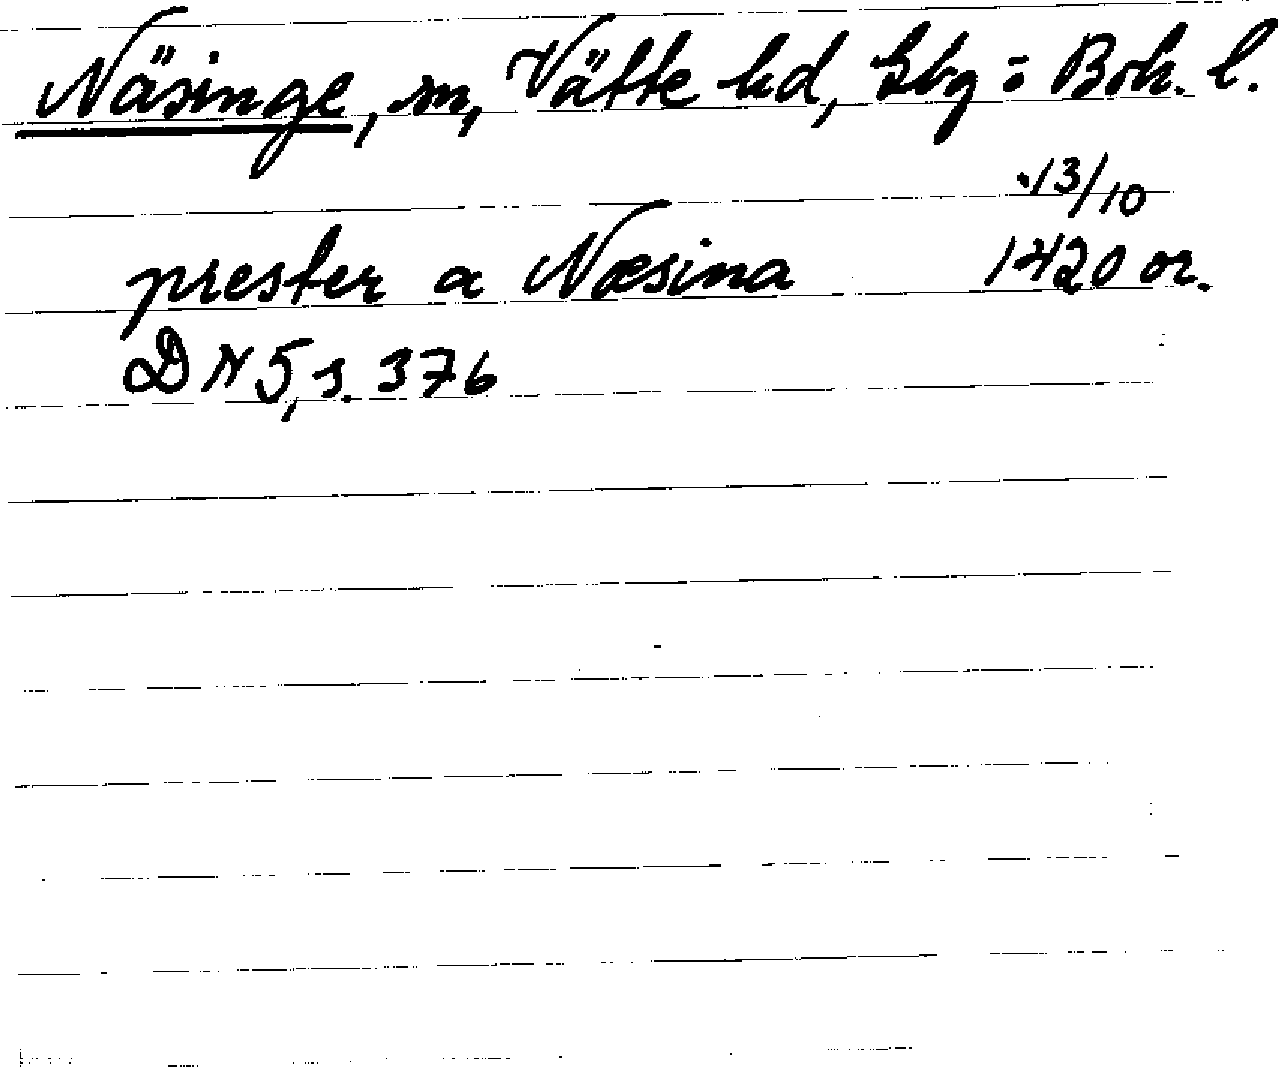 Näsinge, sn, Vätte hd, Gbg o Boh. l.
13/10
prester a Næsina 1420 or.
DN 5, s. 376